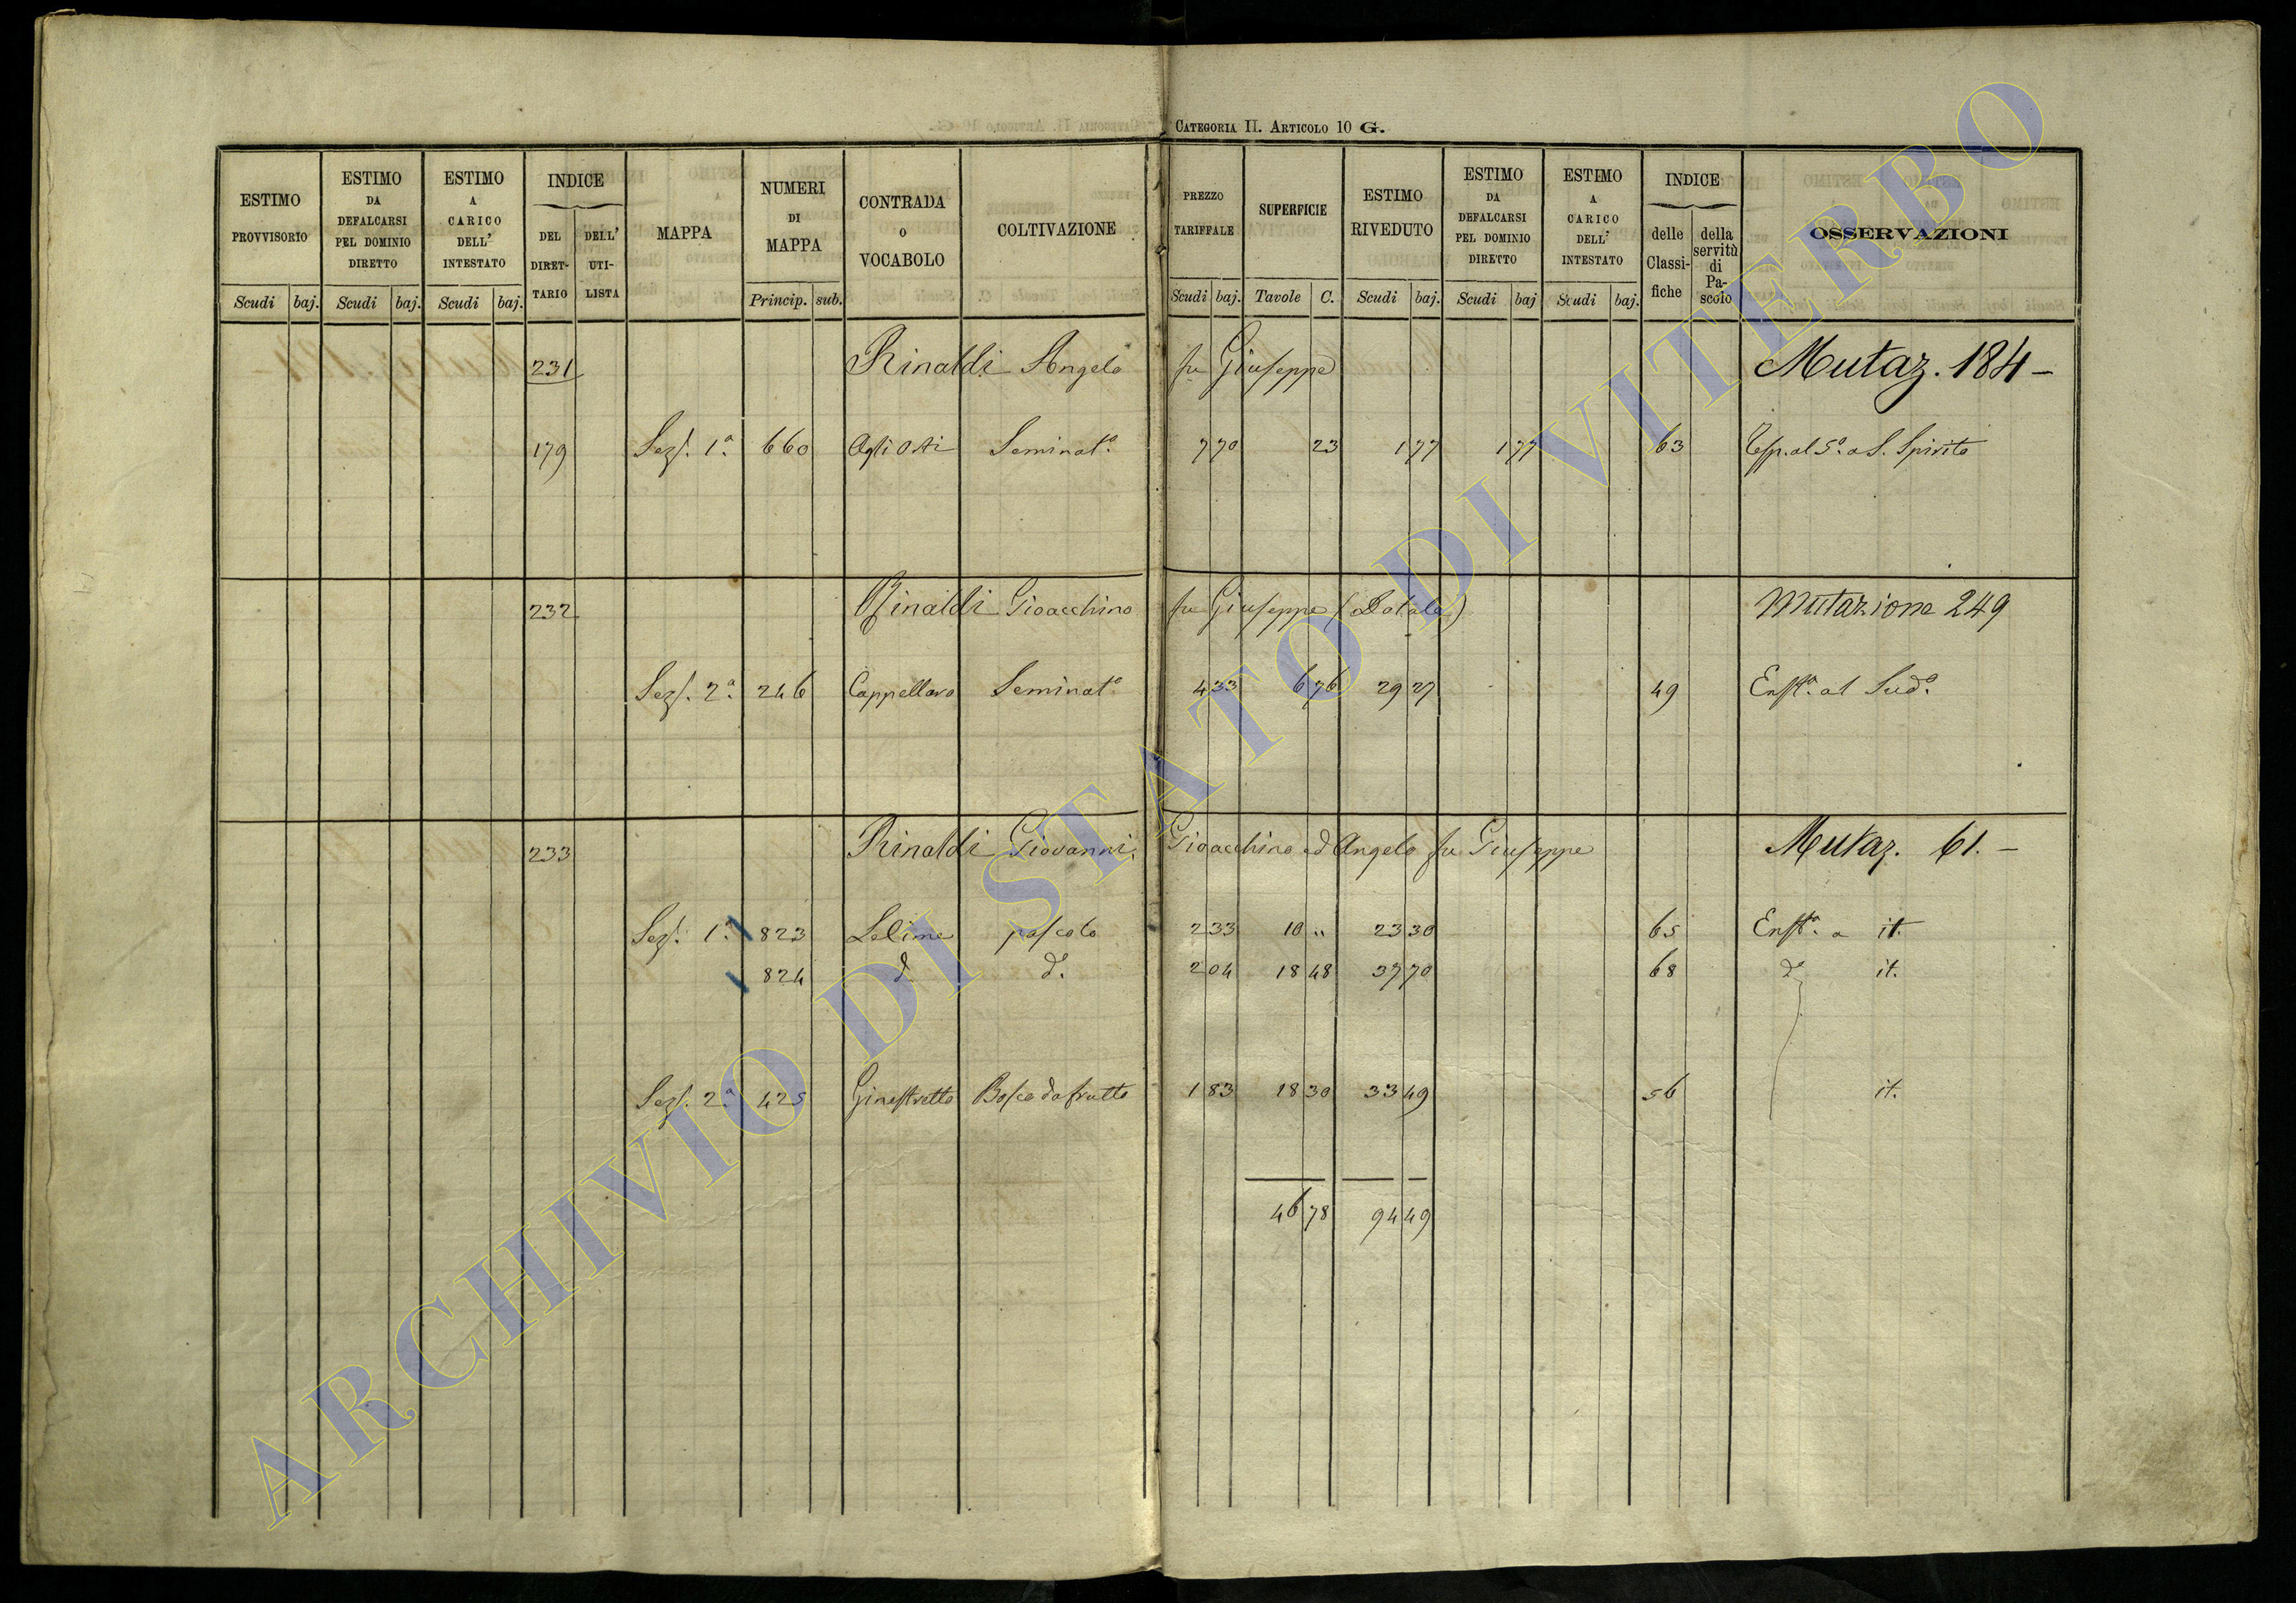 CATEGORIA II. ARTICOLO 10 G.
ESTIMO PROVVISORIO Scudi baj. ESTIMO DA DEFALCARSI PEL DOMINIO DIRETTO Scudi baj. ESTIMO A CARICO DELL' INTESTATO Scudi baj. INDICE DEL DIRET-TARIO DELL' UTI-LISTA MAPPA NUMERI DI MAPPA Princip. sub. CONTRADA O VOCABOLO COLTIVAZIONE PREZZO TARIFFALE Scudi baj. SUPERFICIE Tavole C. ESTIMO RIVEDUTO Scudi baj. ESTIMO DA DEFALCARSI PEL DOMINIO DIRETTO Scudi baj ESTIMO A CARICO DELL' INTESTATO Scudi baj. INDICE delle Classi-fiche della servitù di Pa-scolo OSSERVAZIONI
231 Rinaldi Angelo fu Giuseppe Mutaz. 184 -
179 Sez. 1ª 660 Agli Orti Seminatº 7 70 23 1 77 1 77 63 al 5º a S. Spirito
232 Rinaldi Gioacchino fu Giuseppe Mutazione 249
Sez. 2ª 246 Cappellaro Seminatº 4 33 6 76 29 27 49 Enftª al Sudº
233 Rinaldi Giovanni, Gioacchino ed Angelo fu Giuseppe Mutaz. 61. -
Sez. 1ª 823 Lelime pascolo 2 33 10 " 23 30 65 Enftª a it.
824 dº dº 2 04 18 48 37 70 68 dº it.
Sez. 2ª 425 Ginestretto Bosco da frutto 1 83 18 30 33 49 56 it.
46 78 94 49
ARCHIVIO DI STATO DI VITERBO